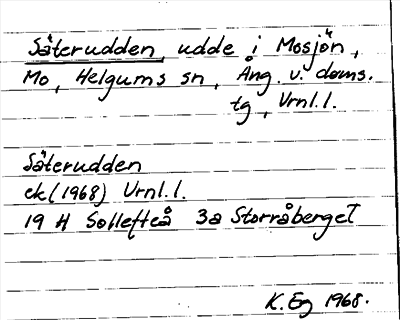 Säterudden, udde i Mosjön,
Mo, Helgums sn, Ång. v. doms.
tg, Vrnl.l.
Säterudden
ek(1968) Vrnl.l.
19 H Sollefteå 3a Storråberget
K. Eg 1968.